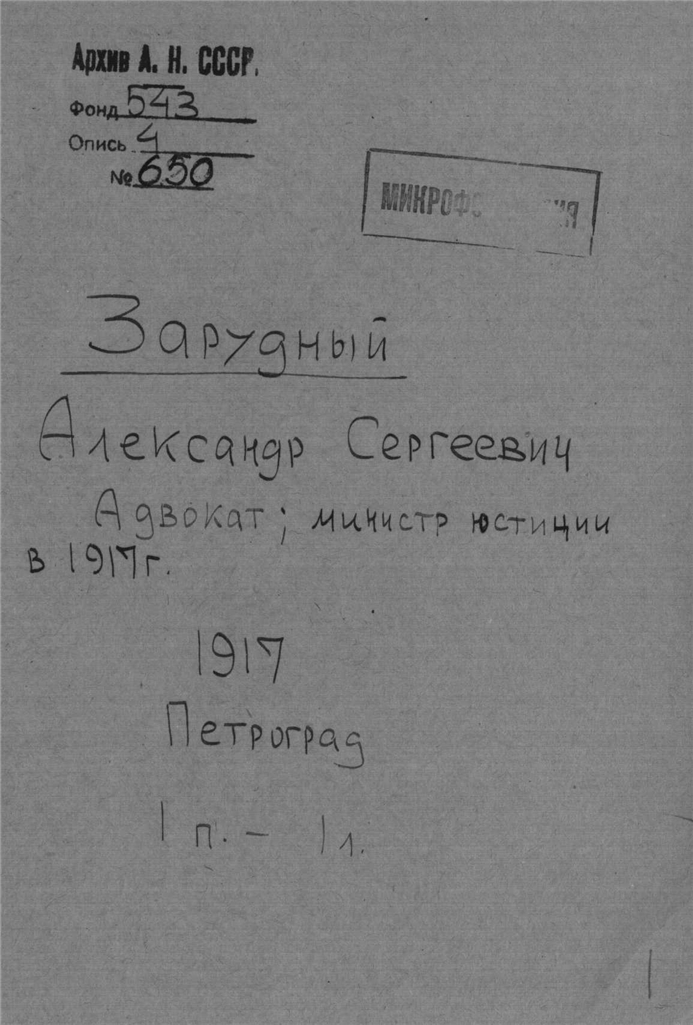 Архив А. Н. СССР.
Фонд 543
Опись 4
№ 650
Зарудный
Александр Сергеевич
Адвокат; министр юстиции
в 1917 г.
1917
Петроград
1 п. – 1 л.
1